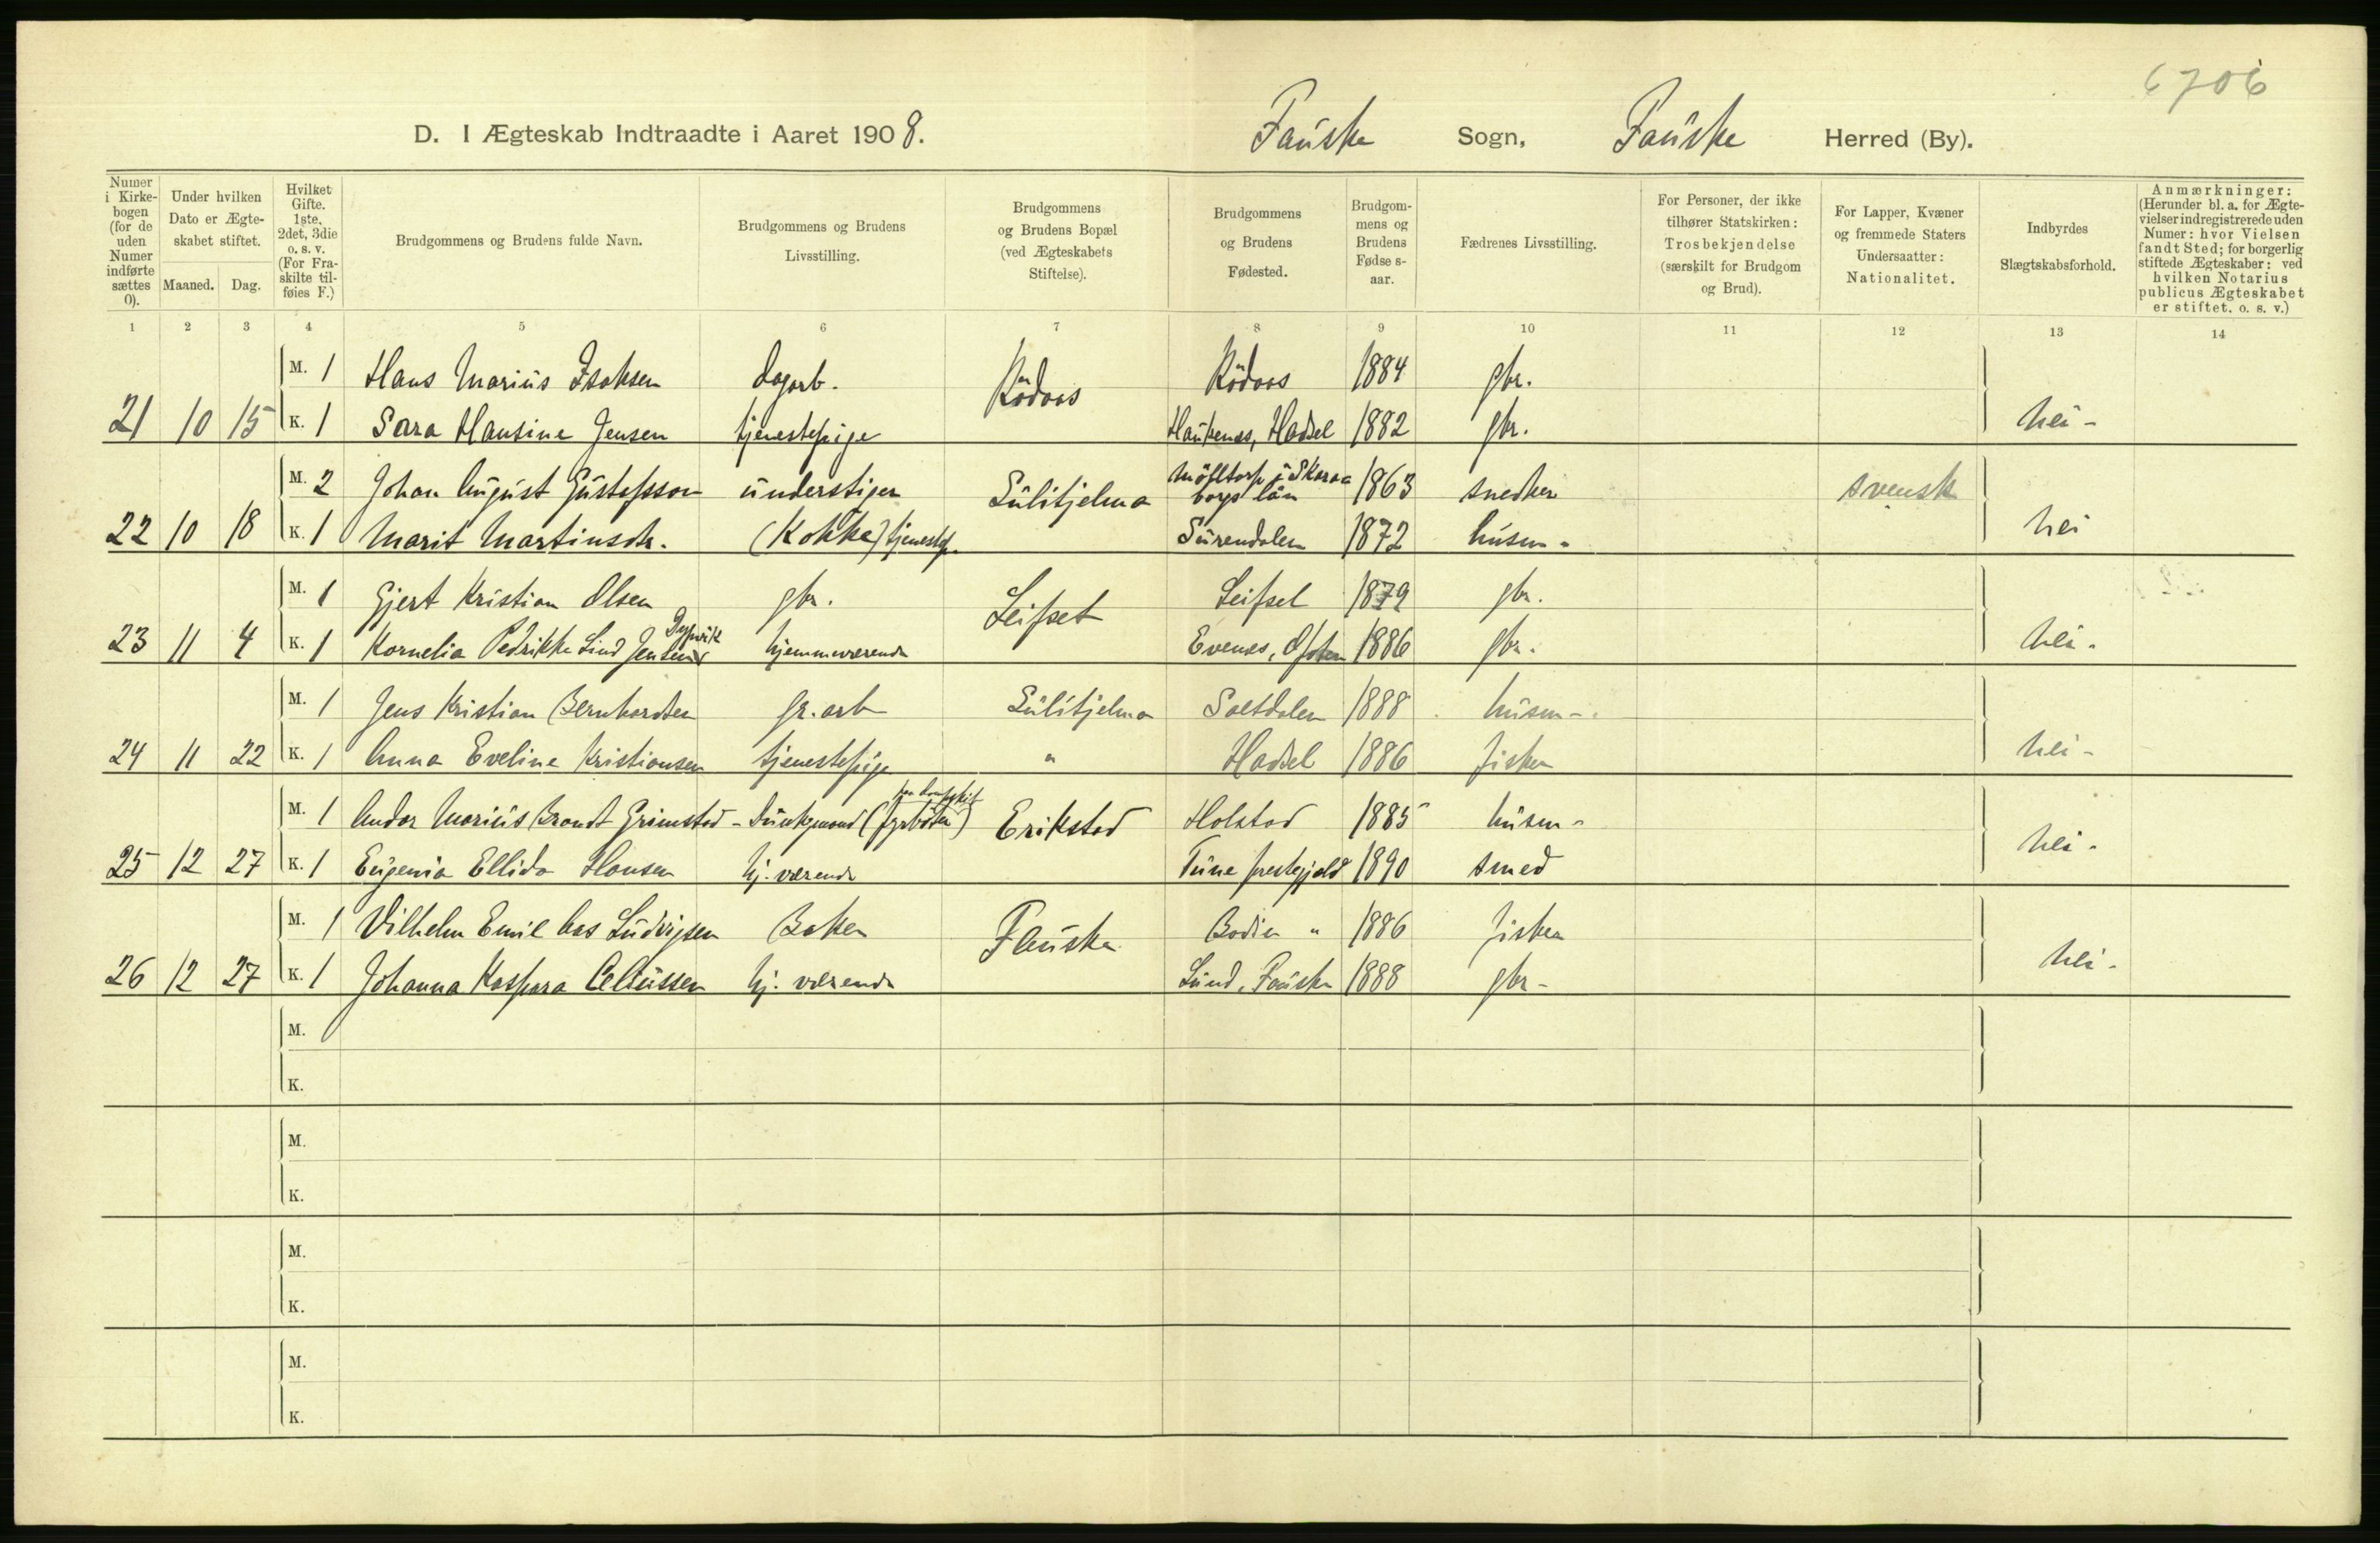 6706
D. I Ægteskab Indtraadte i Aaret 1908. Fauske Sogn, Fauske Herred (By).
Numer i Kirkebogen (for de uden Numer indførte sættes 0). Under hvilken Dato er Ægteskabet stiftet. Maaned. Dag. Hvilket Gifte. 1ste, 2det, 3die o. s. v. (For Fraskilte tilføies F.) Brudgommens og Brudens fulde Navn. Brudgommens og Brudens Livsstilling. Brudgommens og Brudens Bopæl (ved Ægteskabets Stiftelse). Brudgommens og Brudens Fødested. Brudgommens og Brudens Fødselsaar. Fædrenes Livsstilling. For Personer, der ikke tilhører Statskirken: Trosbekjendelse (særskilt for Brudgom og Brud). For Lapper, Kvæner og fremmede Staters Undersaatter: Nationalitet. Indbyrdes Slægtskabsforhold. Anmærkninger: (Herunder bl. a. for Ægtevielser indregistrerede uden Numer: hvor Vielsen fandt Sted; for borgerlig stiftede Ægteskaber: ved hvilken Notarius publicus Ægteskabet er stiftet. o. s. v.)
1 2 3 4 5 6 7 8 9 10 11 12 13 14
M. 1 Hans Marius Isaksen dagarb. Rödøs Rödøs 1884 gbr.
21 10 15 K. 1 Sara Hansine Jensen tjenestepige Haukenes, Hadsel 1882 gbr. Nei -
M. 2 Johan August Gustafsson understiger Sulitjelma i Skaraborgs län 1863 snedker svensk
22 10 18 K. 1 Marit Martinsdr. (Kokke) tjenestep. Surendalen 1872 husm- Nei
M. 1 Gjert Kristian Olsen gbr. Leifset Leifset 1879 gbr.
23 11 4 K. 1 Kornelia Pedrikke Lind Jensen Dypvik hjemmeværende Evenes, Ofoten 1886 gbr. Nei -
M. 1 Jens Kristian Bernhardsen gr. arb Sulitjelma Saltdalen 1888 husm-
24 11 22 K. 1 Anna Eveline Kristiansen tjenestepige " Hadsel 1886 fisker Nei -
M. 1 Andor Marius Brandt Grimstad - (fyrbøter) Erikstad 1885 husm-
25 12 27 K. 1 Eugenia Ellida Hansen hj. værende Tune prestegjeld 1890 smed Nei -
M. 1 Vilhelm Emil Aas Ludvigsen Baker Fauske Bodin " 1886 fisker
26 12 27 K. 1 Johanna Kaspara Celiussen hj. værende Lund, Fauske 1888 gbr - Nei -
M.
K.
M.
K.
M.
K.
M.
K.